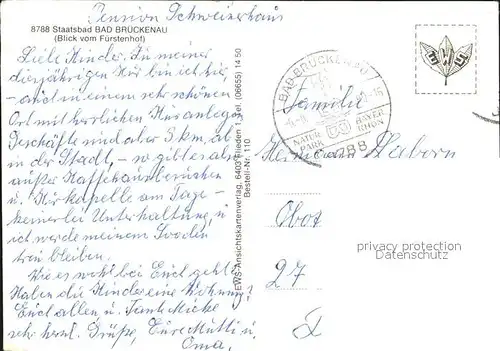 Pension Schweizerhaus
8788 Staatsbad BAD BRÜCKENAU
(Blick vom Fürstenhof)
Liebe Kinder. Zu meiner
diesjährigen Kur bin ich hier,
und in einem sehr schönen
Ort mit herrlichen Kuranlagen
Geschäfte sind aber 3 km, ab
in der Stadt, – so gibt es ab
außer Kaffeehausbesuchen
u. Kurkapelle am Tage –
keinerlei Unterhaltung, u
ich werde meinem
treu bleiben.
Wie es wohl bei Euch geht?
Haben die Kinder eine Wohnung?
Euch allen u. Tante Micke
sehr herzl. Grüße, Eure Mutti u.
Oma.
EWS-Ansichtskartenverlag, 6403 Flieden 1, Tel. (06655) 14 50
Bestell-Nr. 110
BAD BRÜCKENAU
NATUR
PARK
BAYER
RHÖN
8788
Familie
Hermann
27
privacy protection
Datenschutz